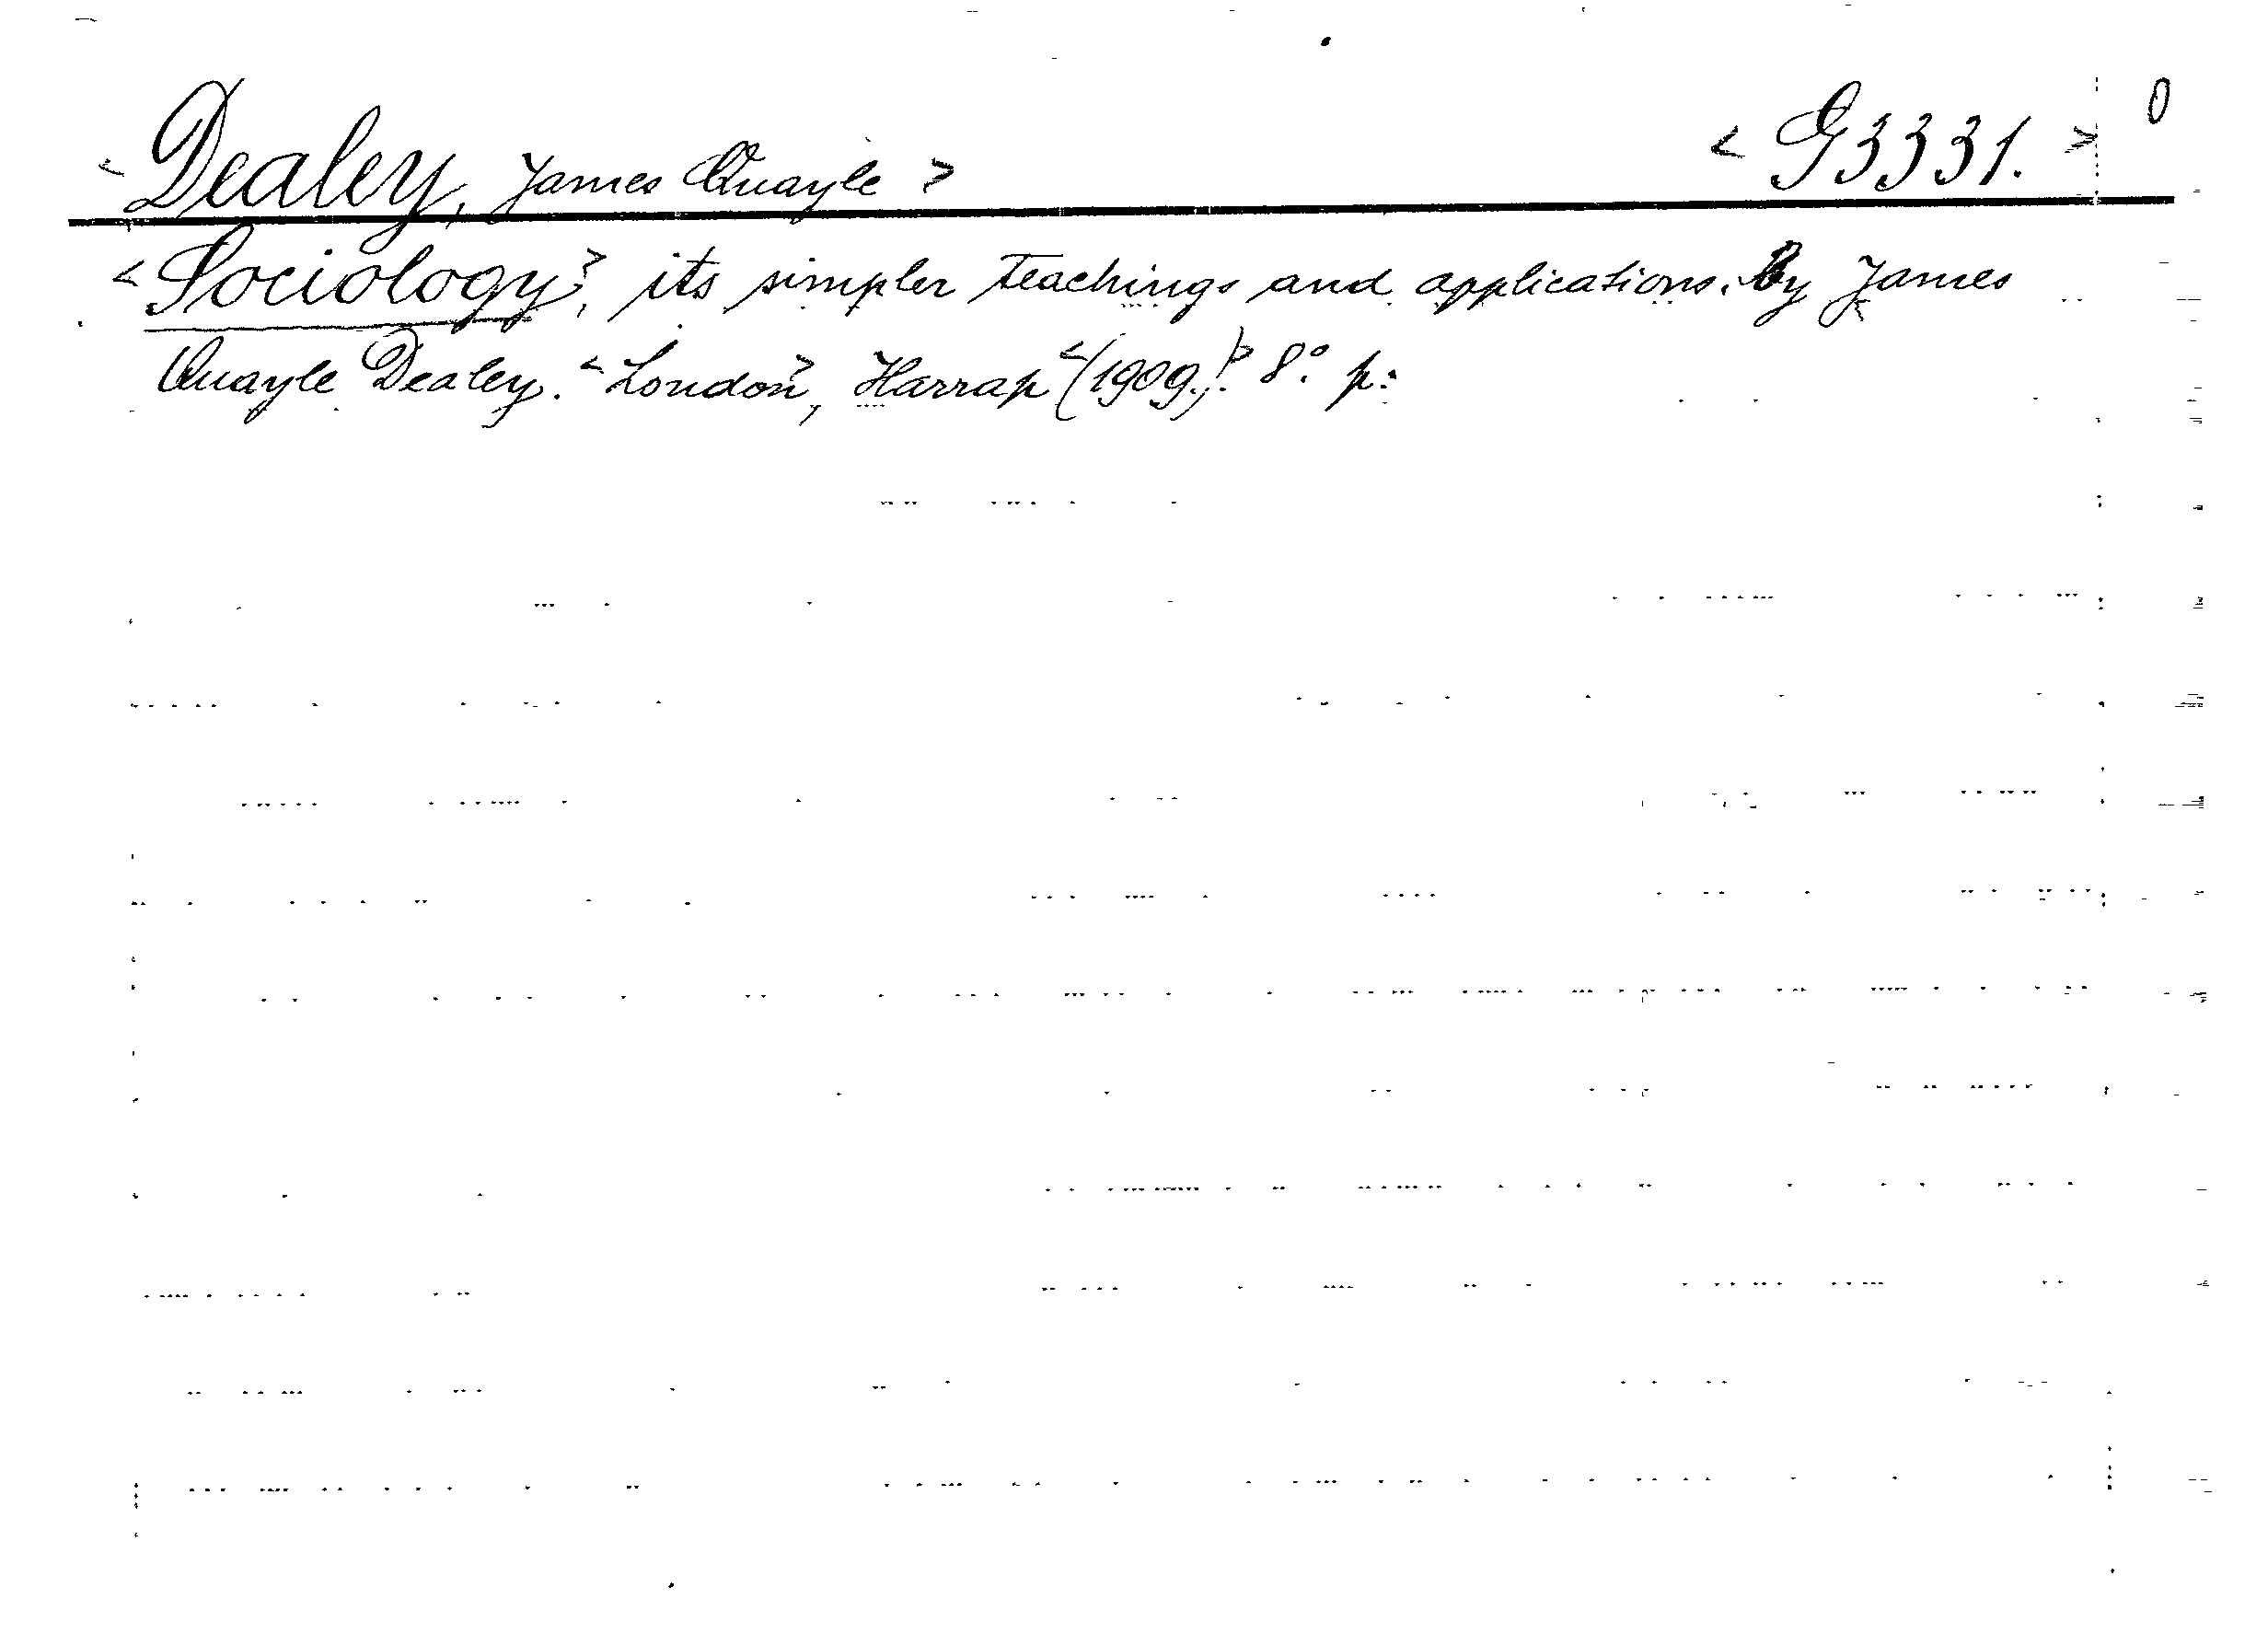 <Dealey, James Quayle> <G3331.> 0
<Sociology>, its simpler teachings and applications. By James
Quayle Dealey. <London>, Harrap <(1909.)>. 8°. p: